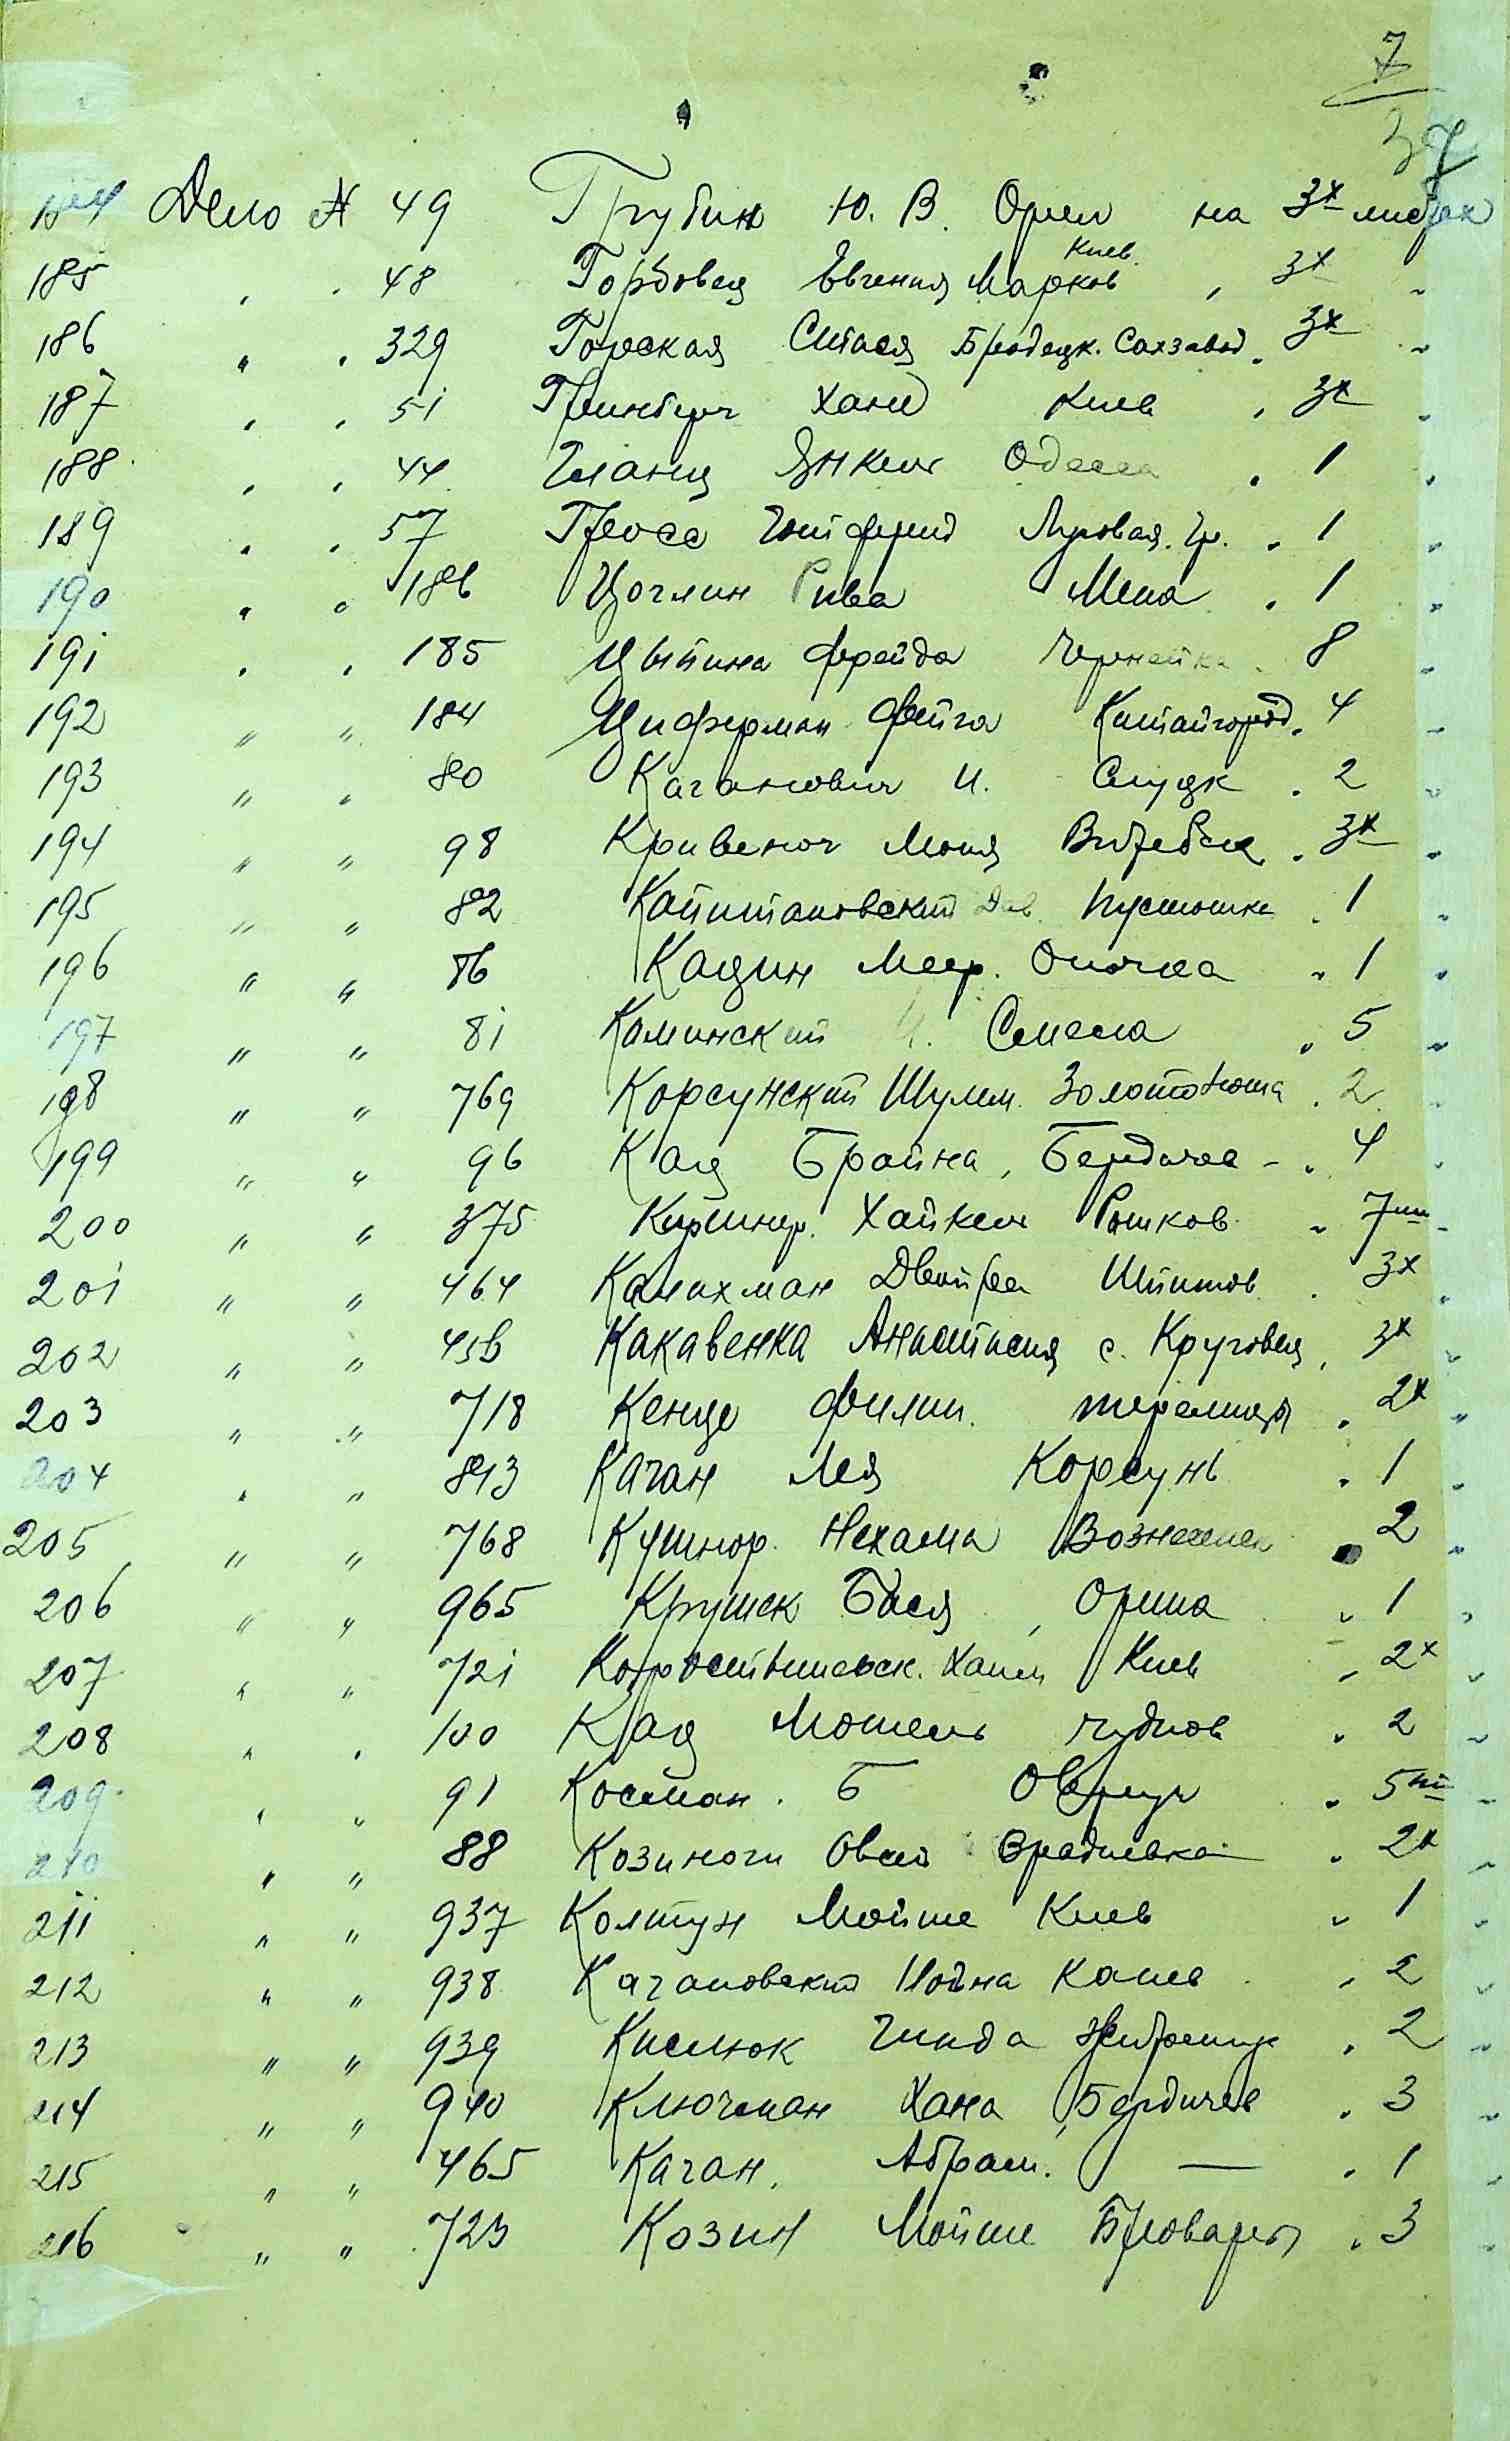 7
37
184 Дело № 49 Грубин Ю. В. Орел на 3х листах
Киев.
185 " " 48 Горбовец Евгения Марков " 3х "
186 " " 329 Горская Стася Бродецк. Сахзавод " 3х "
187 " " 51 Гринберг Хана Киев " 3х "
188 " " 44 Гланц Янкель Одесса " 1 "
189 " " 57 Гросс Готфрид Луговая. Гр. " 1 "
190 " " 186 Цоглин Рива Мена " 1 "
191 " " 185 Цыпина Фрейда " 8 "
192 " " 184 Циферман Фейга Китайгород " 4 "
193 " " 80 Каганович И. Слуцк " 2 "
194 " " 98 Кривеног Моня Витебск " 3х "
195 " " 82 Капитановский Дав. Пустошка " 1 "
196 " " 86 Кацин Меер. Опочка " 1 "
197 " " 81 Каминский И. Смела " 5 "
198 " " 769 Корсунский Шулим. Золотоноша " 2 "
199 " " 96 Кац Брайна, Бердичев - " 4 "
200 " " 375 Киршнер. Хайкель Рашков " 7ми "
201 " " 464 Калихман Двойра Шпиков " 3х "
202 " " 456 Какавенка Анастасия с. Круговец " 3х "
203 " " 718 Филип. " 2х "
204 " " 813 Каган Лея Корсунь " 1 "
205 " " 768 Кушнер. Нехама Вознесенск " 2 "
206 " " 965 Крутек Бася, Орина " 1 "
207 " " 721 Коростышевск. Хаим Киев " 2х "
208 " " 100 Кац Мошель Чуднов " 2 "
209 " " 91 Косман. Б Овруч " 5ти "
210 " " 88 Козиноги Овсей Врадиевка " 2х "
211 " " 937 Колтун Мойше Киев " 1 "
212 " " 938 Кагановский Иойна Канев " 2 "
213 " " 939 Кислюк Гинда " 2 "
214 " " 940 Ключман Хана, Бердичев " 3 "
215 " " 465 Каган. Абрам. — " 1 "
216 " " 723 Козин Мойше Бровары " 3 "